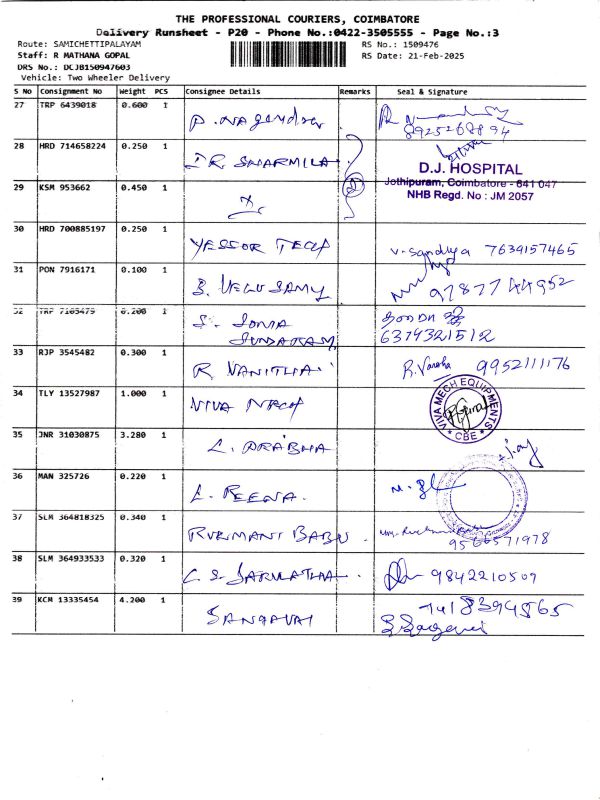 THE PROFESSIONAL COURIERS, COIMBATORE
Delivery Runsheet - P20 - Phone No.:0422-3505555 - Page No.:3
Route: SAMICHETTIPALAYAM
RS No.: 1509476
Staff: R MATHANA GOPAL
RS Date: 21-Feb-2025
DRS No.: DCJB150947603
Vehicle: Two Wheeler Delivery
S No Consignment No Weight PCS Consignee Details Remarks Seal & Signature
27 TRP 6439018 0.600 1 P. Nagendran
8925268894
28 HRD 714658224 0.250 1 DR SHARMILA
D.J. HOSPITAL
Jothipuram, Coimbatore - 641 047
NHB Regd. No : JM 2057
29 KSM 953662 0.450 1
30 HRD 700885197 0.250 1 YESSOR TECH V. Sandhya 7639157465
31 PON 7916171 0.100 1 B. VELUSAMY 97877 44952
32 TRP 7165479 0.200 1 S. SONIA
SUNDARAM
6374321512
33 RJP 3545482 0.300 1 R VANITHA R. Varsha 9952111176
34 TLY 13527987 1.000 1 VIVA MECH
VIVA MECH EQUIPMENTS
* CBE *
35 JNR 31030875 3.280 1 L. PRABHA
36 MAN 325726 0.220 1 L. REENA.
37 SLM 364818325 0.340 1 RUKMANI BABU.
9566571978
38 SLM 364933533 0.320 1 C. S. SARULATHA 9842210509
39 KCM 13335454 4.200 1 SANGAVAI
7418394565